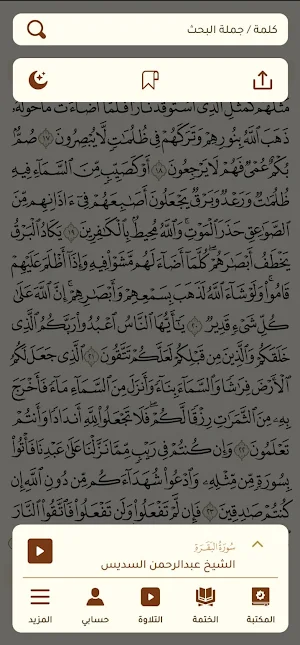 كلمة / جملة البحث
مثلهم كمثل الذي استوقد نارا فلما أضاءت ما حوله
ذهب الله بنورهم وتركهم في ظلمات لا يبصرون ١٧ صم
بكم عمي فهم لا يرجعون ١٨ أو كصيب من السماء فيه
ظلمات ورعد وبرق يجعلون أصابعهم في ءاذانهم من
الصواعق حذر الموت والله محيط بالكافرين ١٩ يكاد البرق
يخطف أبصارهم كلما أضاء لهم مشوا فيه وإذا أظلم عليهم
قاموا ولو شاء الله لذهب بسمعهم وأبصارهم إن الله على
كل شيء قدير ٢٠ يا أيها الناس اعبدوا ربكم الذي
خلقكم والذين من قبلكم لعلكم تتقون ٢١ الذي جعل لكم
الأرض فراشا والسماء بناء وأنزل من السماء ماء فأخرج
به من الثمرات رزقا لكم فلا تجعلوا لله أندادا وأنتم
تعلمون ٢٢ وإن كنتم في ريب مما نزلنا على عبدنا فأتوا
بسورة من مثله وادعوا شهداءكم من دون الله إن
كنتم صادقين ٢٣ فإن لم تفعلوا ولن تفعلوا فاتقوا النار
سورة البقرة
الشيخ عبدالرحمن السديس
المكتبة
الختمة
التلاوة
حسابي
المزيد